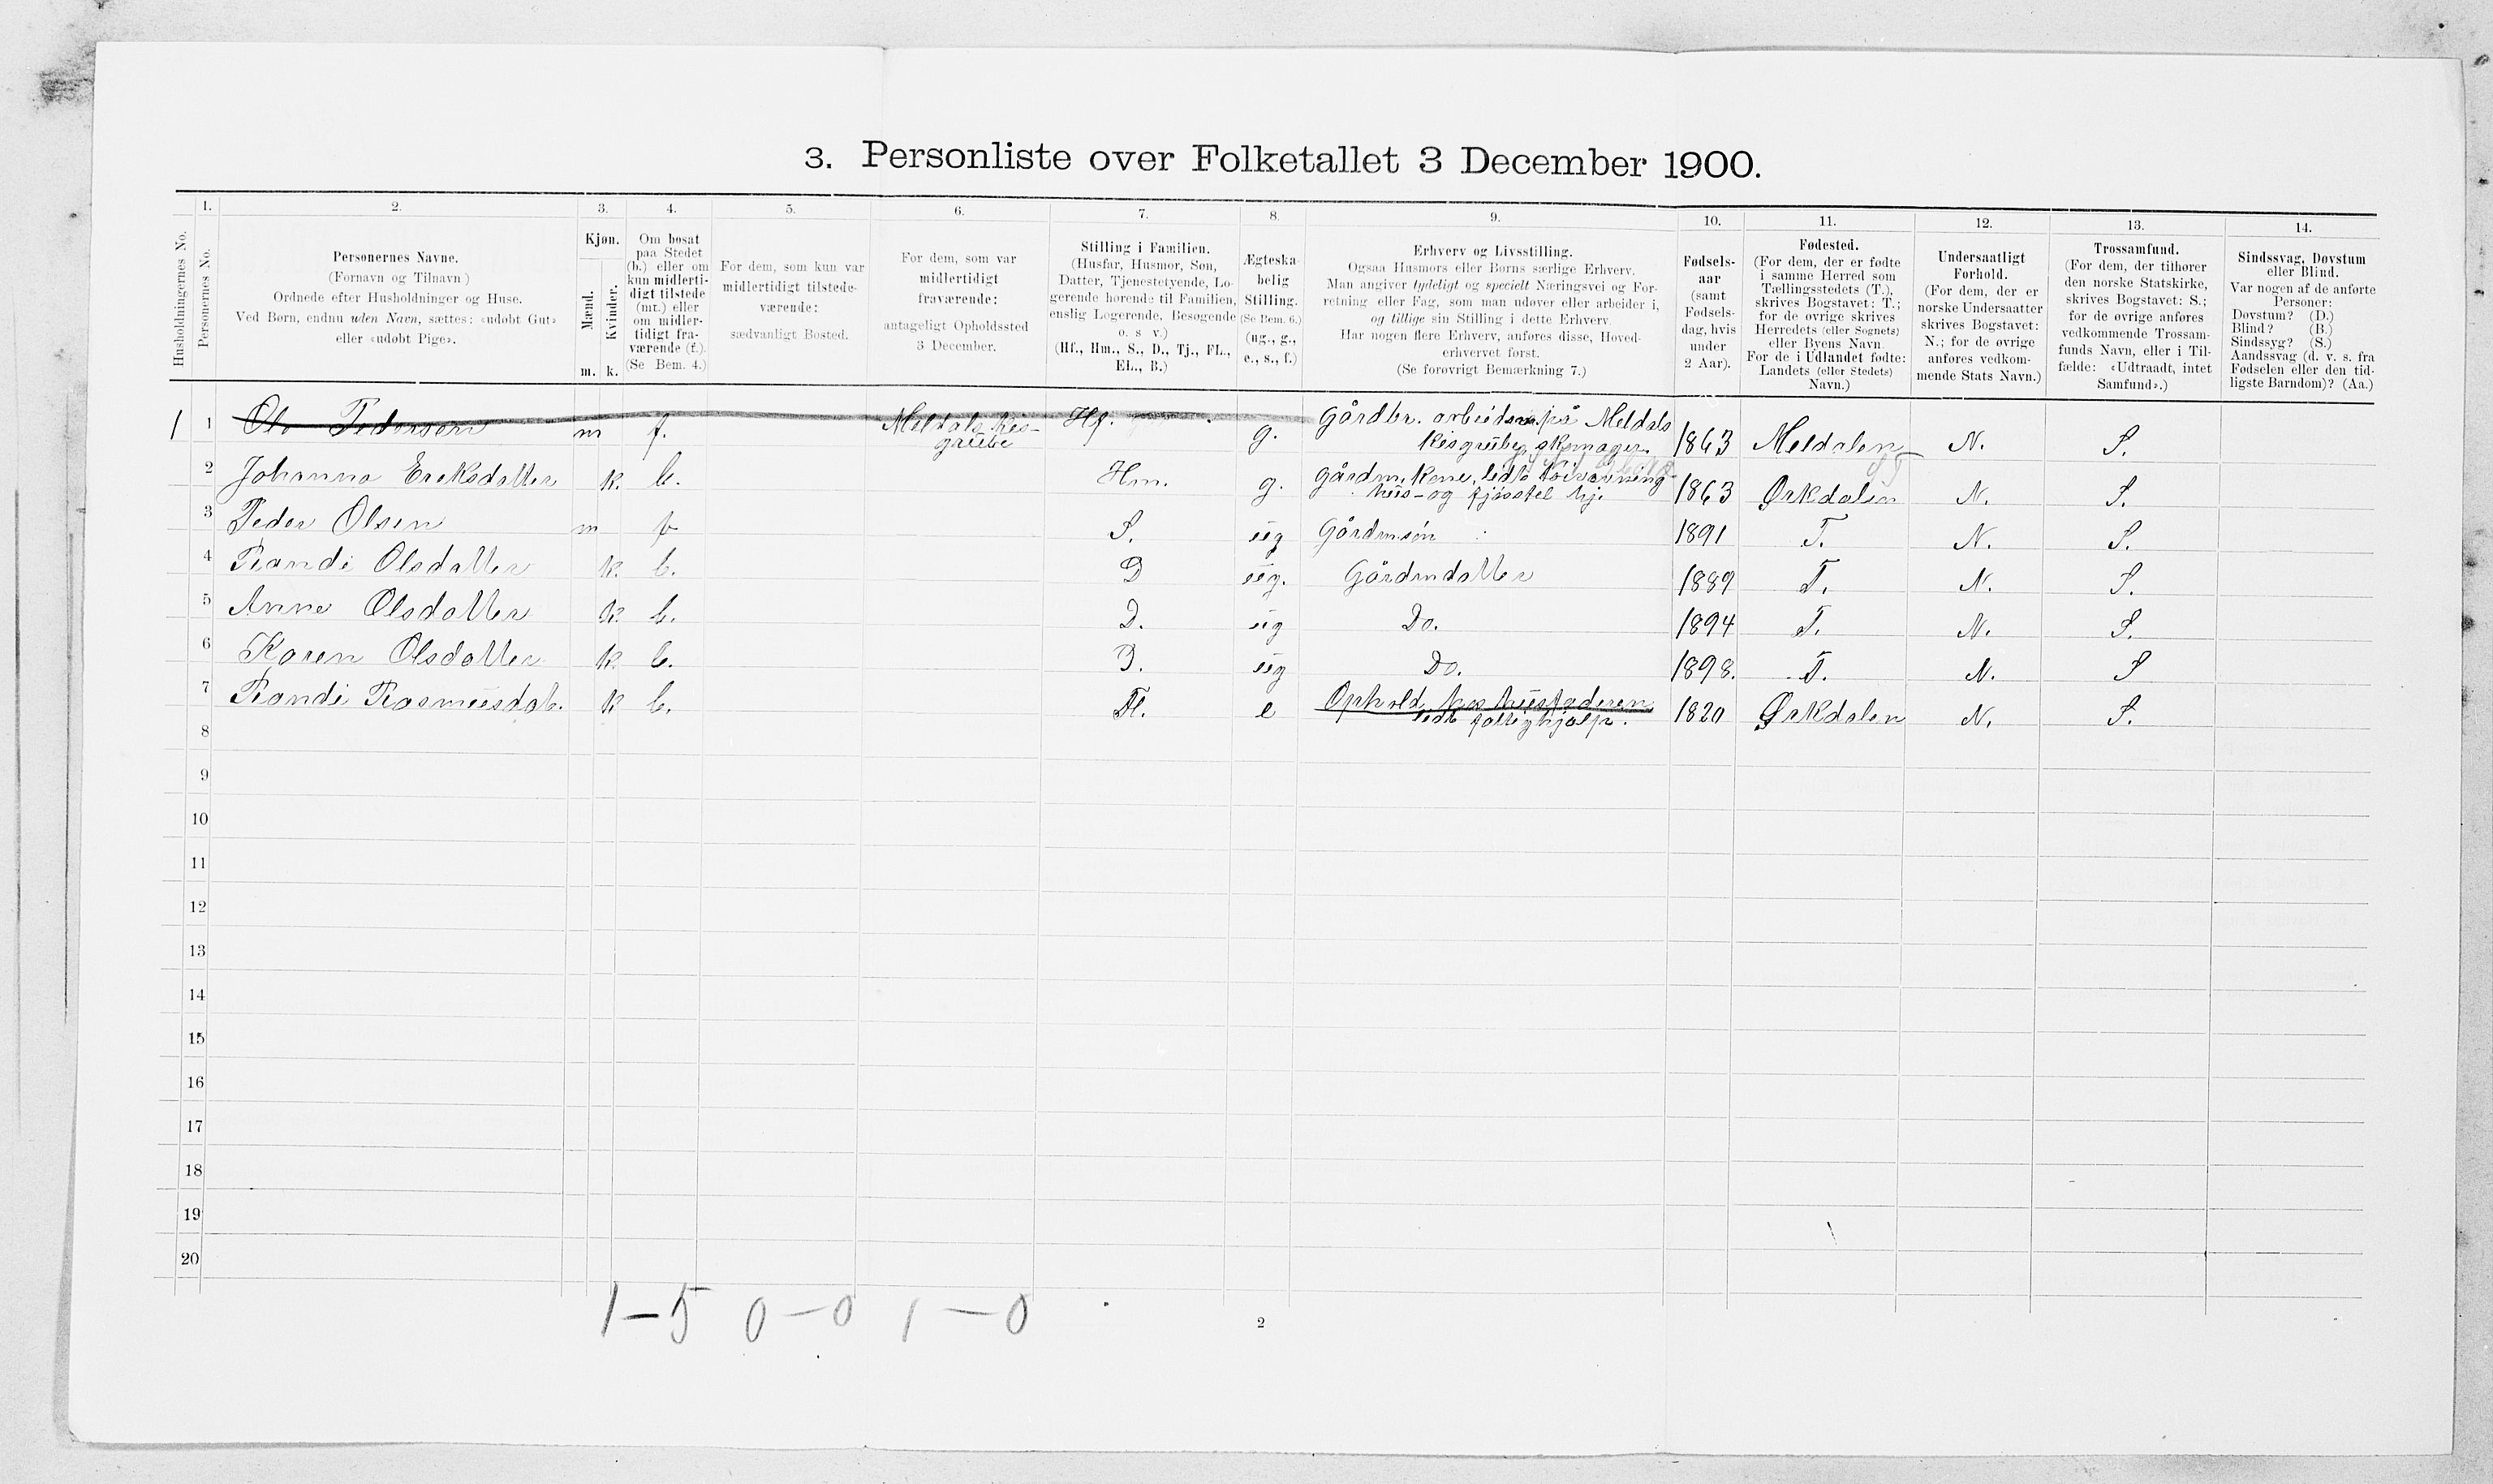 3. Personliste over Folketallet 3 December 1900.
1. 2. 3. 4. 5. 6. 7. 8. 9. 10. 11. 12. 13. 14.
Husholdningernes No.
Personernes No.
Personernes Navne.
(Fornavn og Tilnavn)
Ordnede efter Husholdninger og Huse.
Ved Børn, endnu uden Navn, sættes: «udøbt Gut»
eller «udøbt Pige».
Kjøn.
Mænd.
Kvinder.
m. k.
Om bosat
paa Stedet
(b.) eller om
kun midlerti-
digt tilstede
(mt.) eller
om midler-
tidigt fra-
værende (f.).
(Se Bem. 4.)
For dem, som kun var
midlertidigt tilstede-
værende:
sædvanligt Bosted.
For dem, som var
midlertidigt
fraværende:
antageligt Opholdssted
3 December.
Stilling i Familien.
(Husfar, Husmor, Søn,
Datter, Tjenestetyende, Lo-
gerende hørende til Familien,
enslig Logerende, Besøgende
o. s v.)
(Hf., Hm., S., D., Tj., FL.,
EL., B.)
Ægteska-
belig
Stilling.
(Se Bem. 6.)
(ug., g.,
e., s., f.)
Erhverv og Livsstilling.
Ogsaa Husmors eller Børns særlige Erhverv.
Man angiver tydeligt og specielt Næringsvei og For-
retning eller Fag, som man udøver eller arbeider i,
og tillige sin Stilling i dette Erhverv.
Har nogen flere Erhverv, anføres disse, Hoved-
erhvervet først.
(Se forøvrigt Bemærkning 7.)
Fødsels-
aar
(samt
Fødsels-
dag, hvis
under
2 Aar).
Fødested.
(For dem, der er fødte
i samme Herred som
Tællingsstedets (T.),
skrives Bogstavet: T.;
for de øvrige skrives
Herredets (eller Sognets)
eller Byens Navn.
For de i Udlandet fødte:
Landets (eller Stedets)
Navn.)
Undersaatligt
Forhold.
(For dem, der er
norske Undersaatter
skrives Bogstavet:
N.; for de øvrige
anføres vedkom-
mende Stats Navn.)
Trossamfund.
(For dem, der tilhører
den norske Statskirke,
skrives Bogstavet: S.;
for de øvrige anføres
vedkommende Trossam-
funds Navn, eller i Til-
fælde: «Udtraadt, intet
Samfund».)
Sindssvag, Døvstum
eller Blind.
Var nogen af de anførte
Personer:
Døvstum? (D.)
Blind? (B.)
Sindssyg? (S.)
Aandssvag (d. v. s. fra
Fødselen eller den tid-
ligste Barndom)? (Aa.)
1 1 Ole Pedersen m f. Meldals kis- Hf. g. Gårdbr. arbeider på Meldals 1863 Meldalen N. S.
grube kisgrube, skomager.
2 Johanna Eriksdatter k. b. Hm. g. gårdm. kone, 1863 Ørkdalen N. S.
hus- og fjøsstel
3 Peder Olsen m f S. ug Gårdm.søn 1891 T. N. S.
4 Randi Olsdatter k. b. D ug. Gårdmdatter 1889 T. N. S.
5 Anne Olsdatter k. b. D. ug Do. 1894 T. N. S.
6 Karen Olsdatter k. b. D. ug Do. 1898. T. N. S
7 Randi Rasmusdat. k b. Fl. e Ophold hos husfaderen 1820 Ørkdalen N. S.
lidt fattighjælp.
8
9
10
11
12
13
14
15
16
17
18
19
20
1-5 0-0 1-0
2